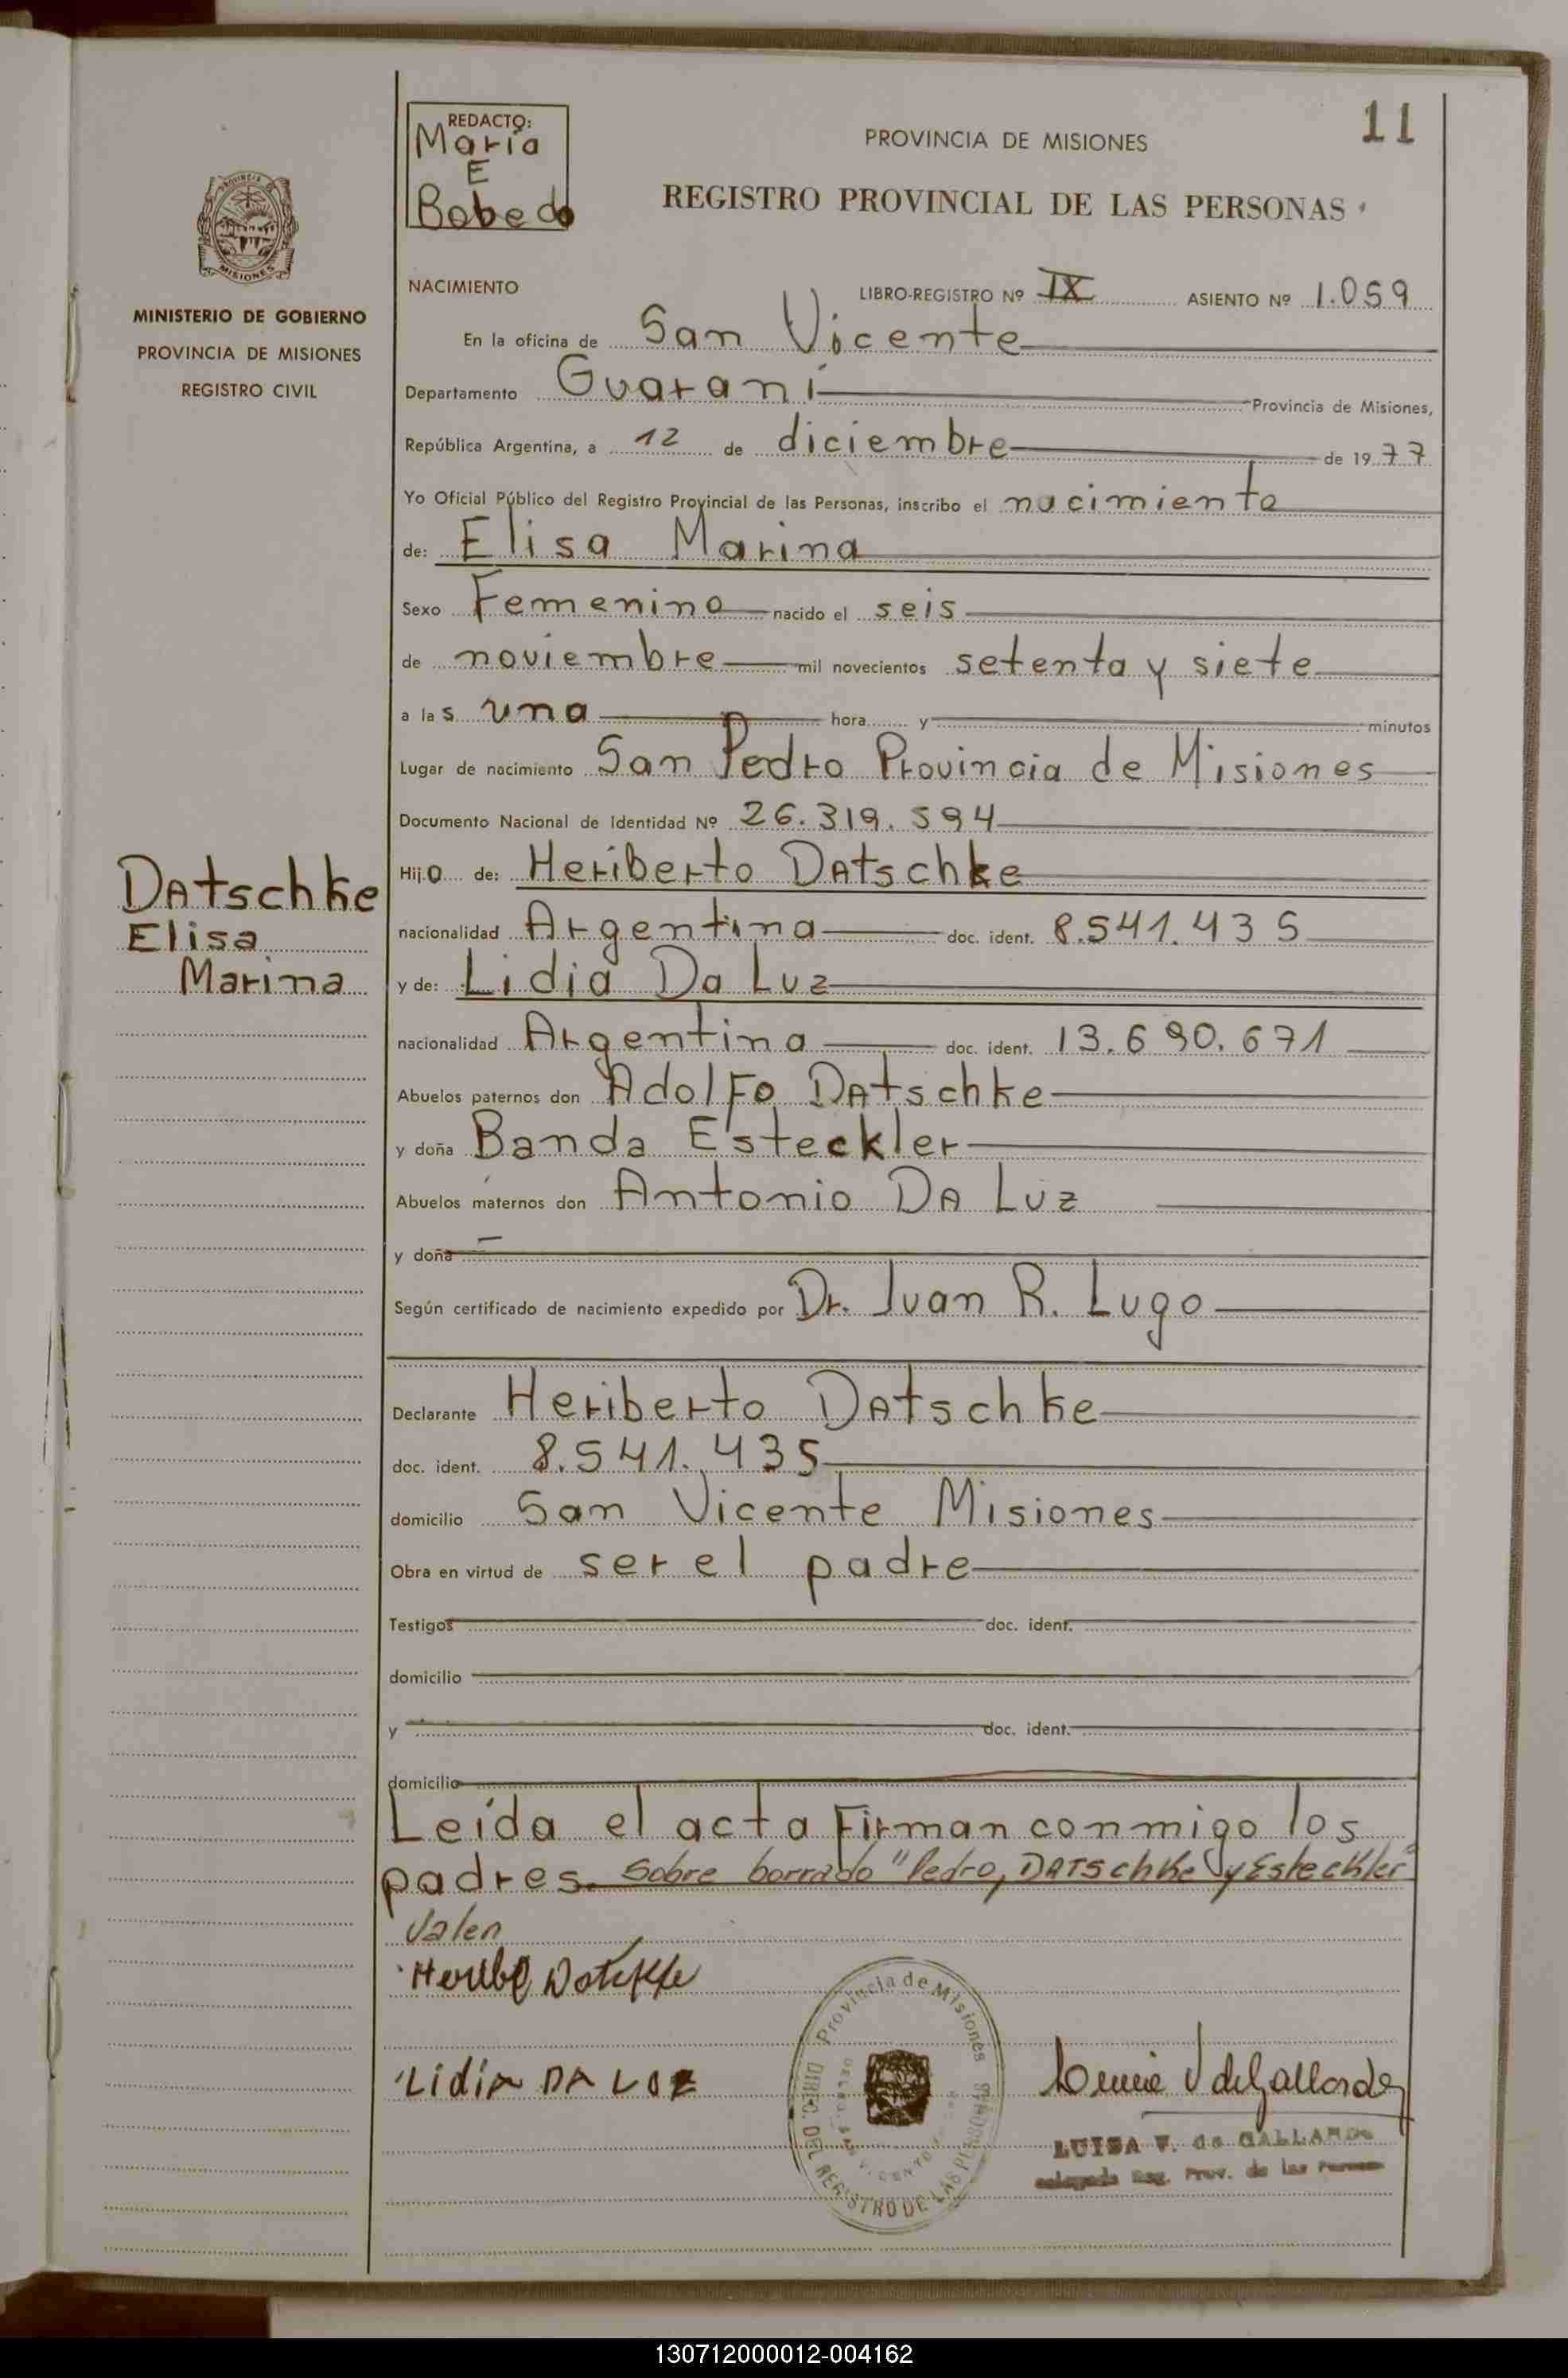 11
REDACTO:
Maria
E
Bobedo
PROVINCIA DE MISIONES
REGISTRO PROVINCIAL DE LAS PERSONAS
PROVINCIA DE
MISIONES
MINISTERIO DE GOBIERNO
PROVINCIA DE MISIONES
REGISTRO CIVIL
NACIMIENTO LIBRO-REGISTRO Nº IX ASIENTO Nº 1.059
En la oficina de San Vicente
Departamento Guaraní Provincia de Misiones,
República Argentina, a 12 de diciembre de 1977
Yo Oficial Público del Registro Provincial de las Personas, inscribo el nacimiento
de: Elisa Marina
Sexo Femenino nacido el seis
de noviembre mil novecientos setenta y siete
a las una hora y minutos
Lugar de nacimiento San Pedro Provincia de Misiones
Documento Nacional de Identidad Nº 26.319.594
Datschke
Elisa
Marina
Hijo de: Heriberto Datschke
nacionalidad Argentina doc. ident. 8.541.435
y de: Lidia Da Luz
nacionalidad Argentina doc. ident. 13.690.671
Abuelos paternos don Adolfo Datschke
y doña Banda Esteckler
Abuelos maternos don Antonio Da Luz
y doña
Según certificado de nacimiento expedido por Dr. Juan R. Lugo
Declarante Heriberto Datschke
doc. ident. 8.541.435
domicilio San Vicente Misiones
Obra en virtud de ser el padre
Testigos doc. ident.
domicilio
y doc. ident.
domicilio
Leída el acta firman conmigo los
padres. Sobre borrado "Pedro, Datschke y Esteckler"
Valen
Lidia DA LUZ
Provincia de Misiones
DIREC. DEL REGISTRO DE LAS PERSONAS
LUISA V. de GALLARDO
Delegada Reg. Prov. de las Personas
130712000012-004162